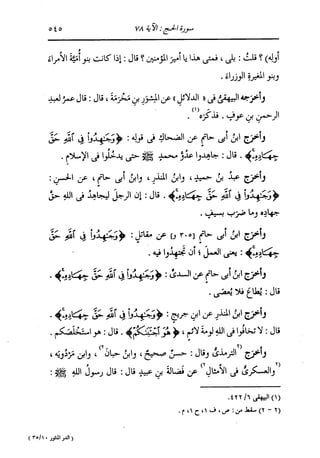 سورة الحج : الآية ٧٨
٥٤٥
أوله) ؟ قلت : بلى ، فمتى هذا يا أمير المؤمنين ؟ قال : إذا كانت بنو أمية الأمراء
وبنو المغيرة الوزراء .
وأخرجه البيهقى فى « الدلائل » عن المسور بن مخرمة ، قال : قال عمر لعبد
الرحمن بن عوف . فذكره(١) .
وأخرج ابن أبى حاتم عن الضحاك فى قوله : ﴿وجهدوا فى الله حق
جهاده﴾ . قال : جاهدوا عدو محمد ﷺ حتى يدخلوا فى الإسلام .
وأخرج عبد بن حميد ، وابن المنذر ، وابن أبى حاتم ، عن الحسن :
﴿وجهدوا فى الله حق جهاده﴾ . قال : إن الرجل ليجاهد فى الله حق
جهاده وما ضرب بسيف .
وأخرج ابن أبى حاتم [٣٠٥ و] عن مقاتل : ﴿وجهدوا فى الله حق
جهاده﴾ : يعنى العمل ؛ أن تجتهدوا فيه .
وأخرج ابن أبى حاتم عن السدى : ﴿وجهدوا فى الله حق جهاده﴾ .
قال : يطاع فلا يعصى .
وأخرج ابن المنذر عن ابن جريج : ﴿وجهدوا فى الله حق جهاده﴾ .
قال : لا تخافوا فى الله لومة لائم ، ﴿هو اجتبىكم﴾ . قال : هو استخلصكم .
وأخرج (٢)الترمذى وقال : حسن صحيح ، وابن حبان(٢) ، وابن مردويه ،
(٢)والعسكرى فى الأمثال(٢) عن فضالة بن عبيد قال : قال رسول الله ﷺ :
(١) البيهقى ٦/ ٤٢٢.
(٢ - ٢) سقط من : ص ، ف ١ ، ح ١ ، م .
( الدر المنثور ٣٥/١٠ )